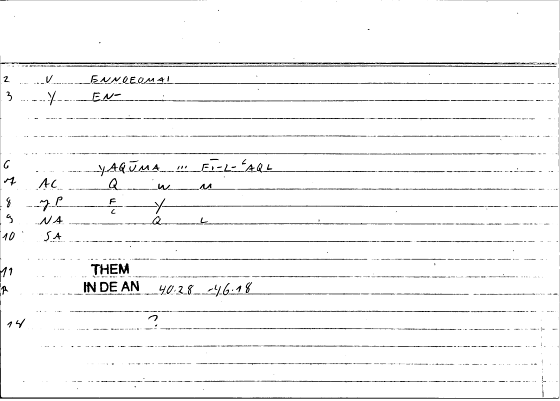 2 V ENNOEOMAI
3 Y EN-
6 YAQŪMA ... FĪ-L-ʿAQL
7 AC Q W M
8 YP F Y
9 NA C Q L
10 SA
11 THEM
IN DE AN 40.28 -46.18
14 ?